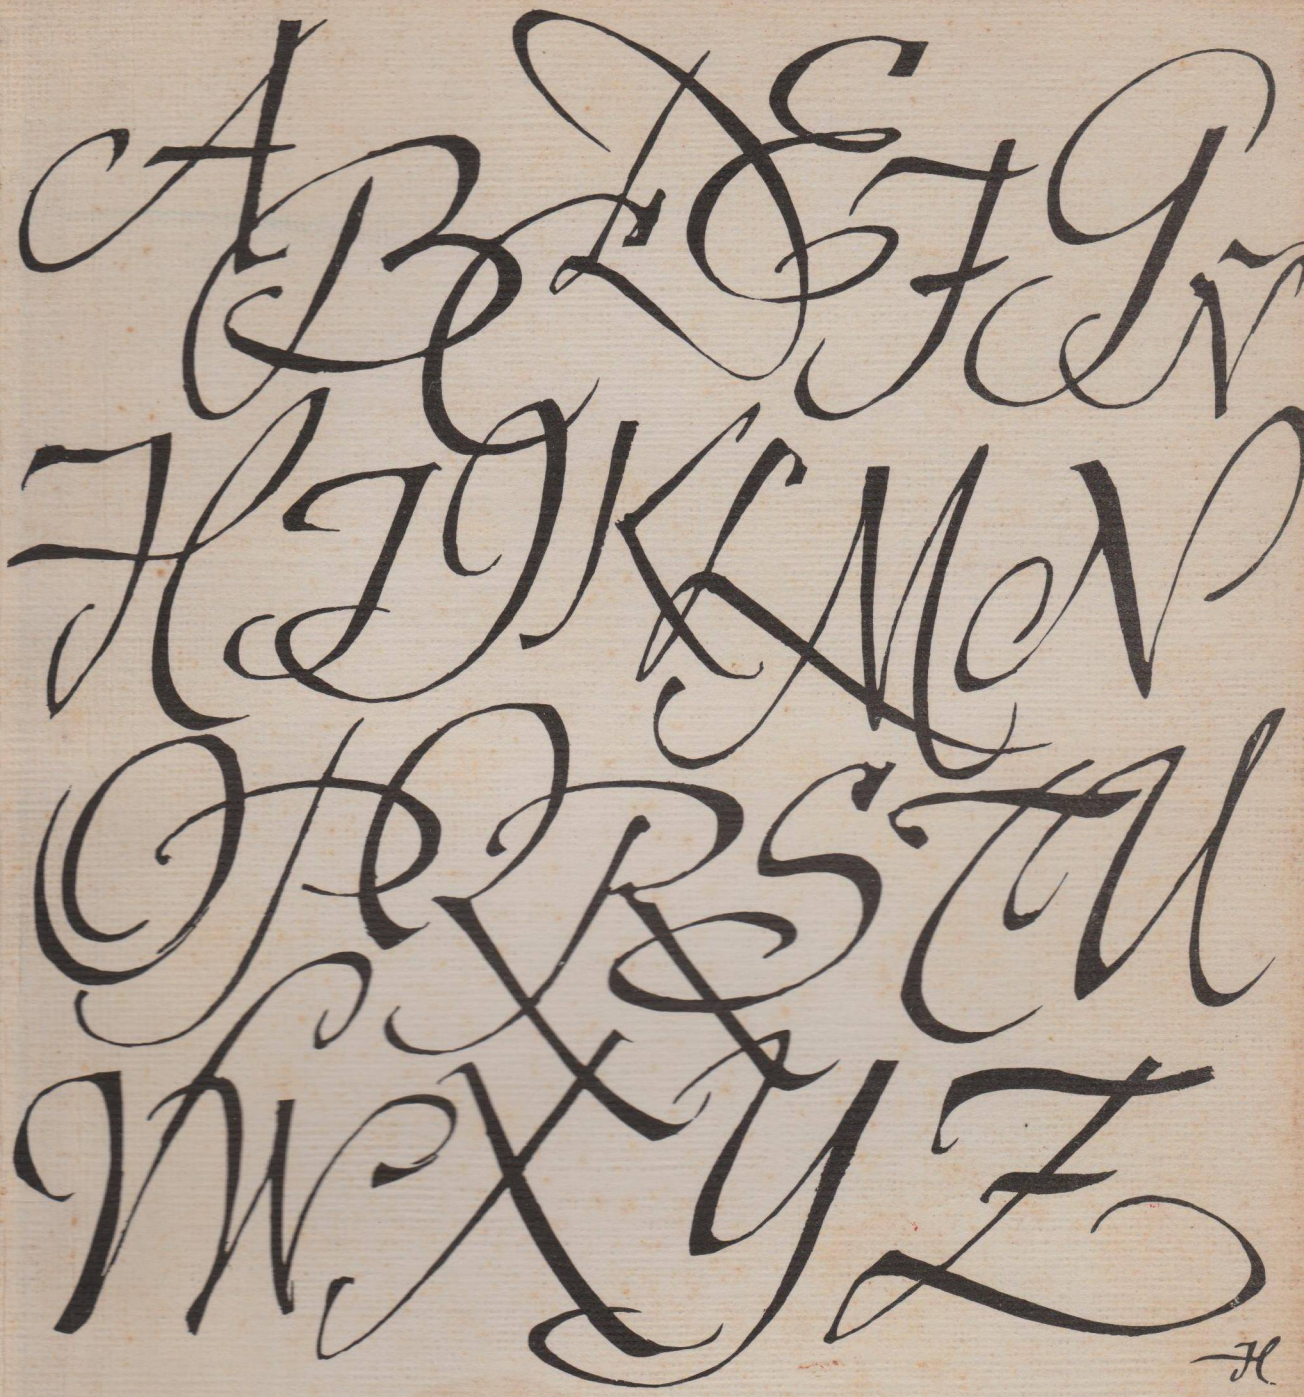 A B C D E F G Ñ
H I J K L M N
O P Q R S T U
V W X Y Z
H